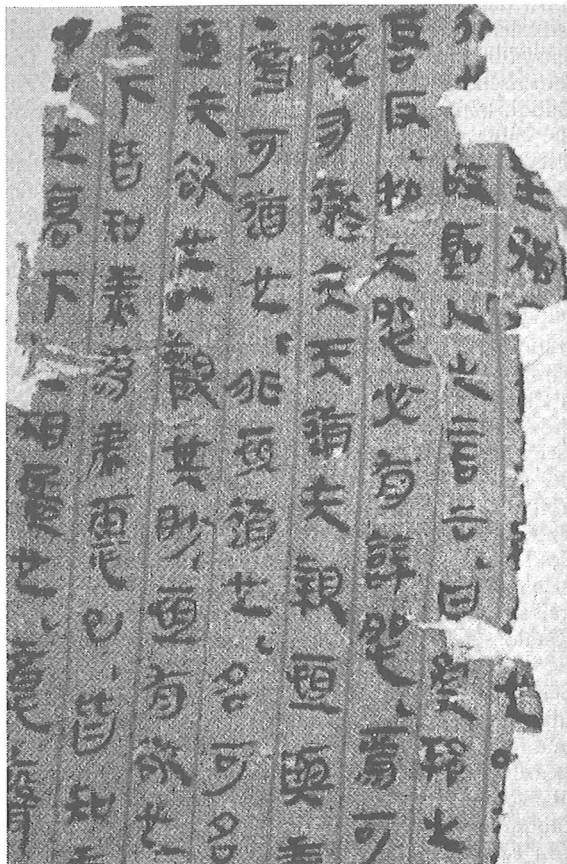 之強也
故聖人之言云曰受邦之
若反和大怨必有餘怨焉可
德司徹夫天道无親恒與善
道可道也非恒道也名可名
恒无欲也以觀其眇恒有欲也
天下皆知美為美惡已皆知善
也高下之相盈也意聲